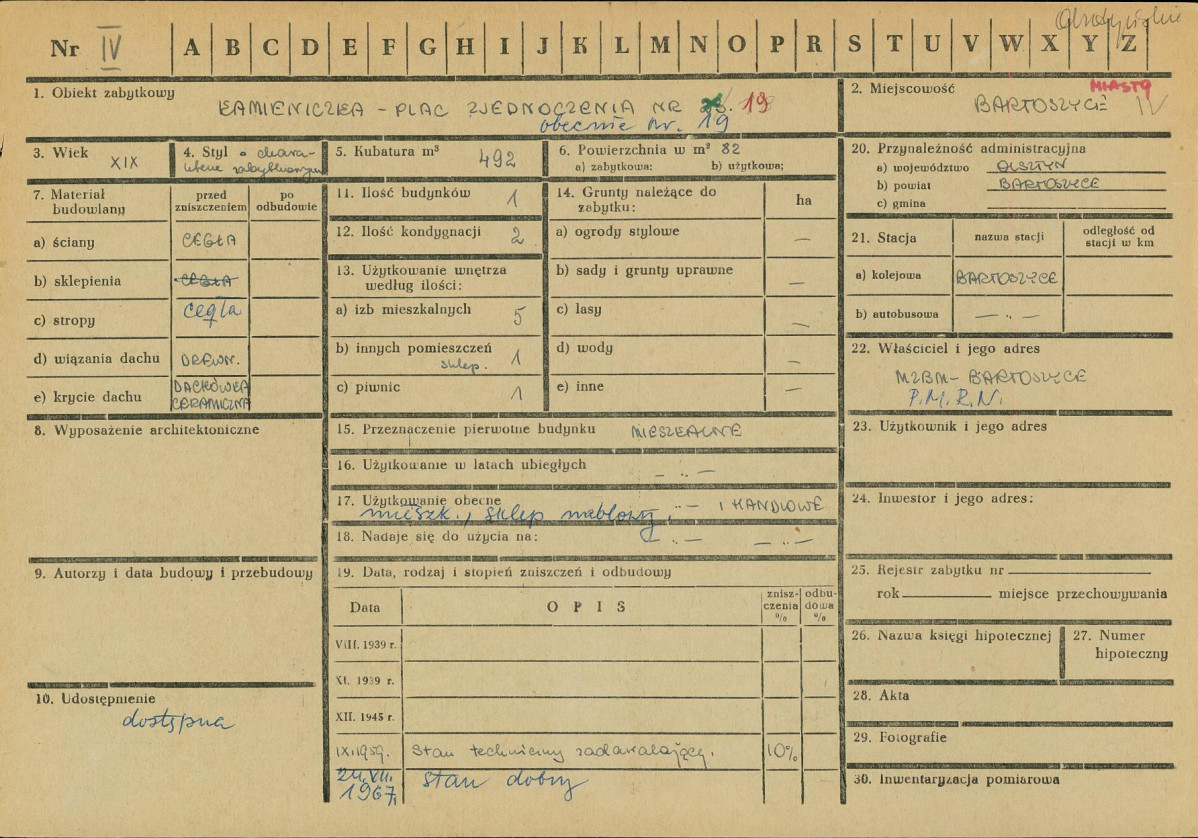 Nr IV A B C D E F G H I J K L M N O P R S T U V W X Y Z
1. Obiekt zabytkowy
KAMIENICZKA – PLAC ZJEDNOCZENIA NR 19
obecnie nr. 19
2. Miejscowość
MIASTO
BARTOSZYCE IV
3. Wiek XIX
4. Styl o charakterze zabytkowym
5. Kubatura m³ 492
6. Powierzchnia w m² 82
a) zabytkowa: b) użytkowa;
7. Materiał budowlany
przed zniszczeniem
po odbudowie
a) ściany CEGŁA
b) sklepienia CEGŁA
c) stropy cegła
d) wiązania dachu DREWN.
e) krycie dachu DACHÓWKA CERAMICZNA
8. Wyposażenie architektoniczne
9. Autorzy i data budowy i przebudowy
10. Udostępnienie
dostępna
11. Ilość budynków 1
12. Ilość kondygnacji 2
13. Użytkowanie wnętrza według ilości:
a) izb mieszkalnych 5
b) innych pomieszczeń 1
sklep.
c) piwnic 1
14. Grunty należące do zabytku: ha
a) ogrody stylowe —
b) sady i grunty uprawne —
c) lasy —
d) wody —
e) inne —
15. Przeznaczenie pierwotne budynku MIESZKALNE
16. Użytkowanie w latach ubiegłych — „ —
17. Użytkowanie obecne „ — I HANDLOWE
mieszk., sklep meblowy,
18. Nadaje się do użycia na: — „ — — „ —
19. Data, rodzaj i stopień zniszczeń i odbudowy
Data OPIS zniszczenia % odbudowa %
VIII. 1939 r.
XI. 1939 r.
XII. 1945 r.
IX.1959. Stan techniczny zadawalający. 10%
24.VII. 1967. stan dobry
20. Przynależność administracyjna
a) województwo OLSZTYN
b) powiat BARTOSZYCE
c) gmina
21. Stacja
nazwa stacji
odległość od stacji w km
a) kolejowa BARTOSZYCE
b) autobusowa — „ —
22. Właściciel i jego adres
MZBM – BARTOSZYCE
P.M.R.N.
23. Użytkownik i jego adres
24. Inwestor i jego adres:
25. Rejestr zabytku nr
rok miejsce przechowywania
26. Nazwa księgi hipotecznej
27. Numer hipoteczny
28. Akta
29. Fotografie
30. Inwentaryzacja pomiarowa